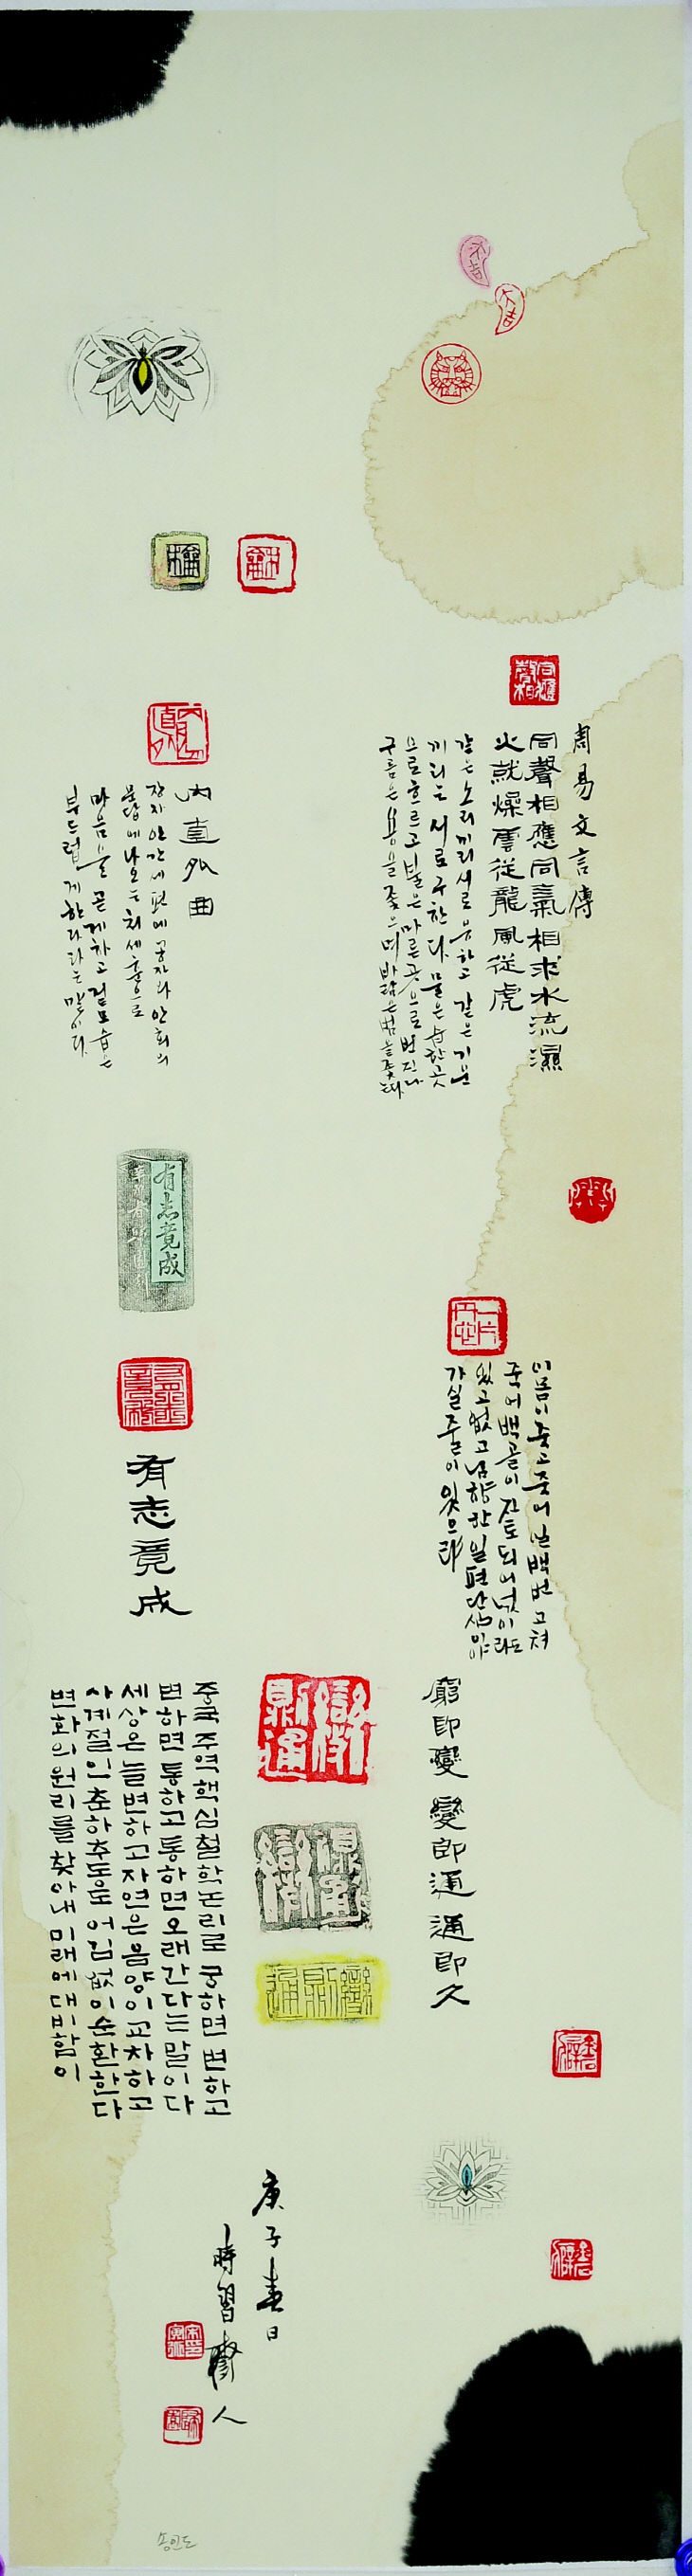 周易文言傳
同聲相應同氣相求水流濕
火就燥雲從龍風從虎
같은 소리끼리 서로 응하고 같은 기운
끼리는 서로 구한다. 물은 습한 곳
으로 흐르고 불은 마른 곳으로 번진다.
구름은 용을 좇으며 바람은 범을 좇는다.
大吉
內直外曲
장자 인간세편에 공자와 안회의
문답에 나오는 처세훈으로
마음을 곧게하고 겉모습은
부드럽게 한다라는 말이다.
이몸이 죽고 죽어 일백번 고쳐
죽어 백골이 진토되어 넋이라도
있고 없고 님 향한 일편단심이야
가실 줄이 있으랴
有志竟成
有志竟成
窮即變 變即通 通即久
중국 주역 핵심 철학논리로 궁하면 변하고
변하면 통하고 통하면 오래간다는 말이다
세상은 늘 변하고 자연은 음양이 교차하고
사계절인 춘하추동도 어김없이 순환한다
변화의 원리를 찾아내 미래에 대비함이
庚子春日
時習齋人
송인도